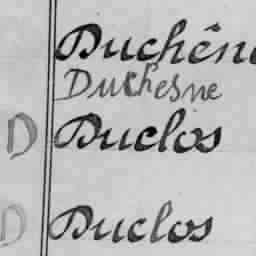 Duchêne
Duchesne
D Duclos
D Duclos